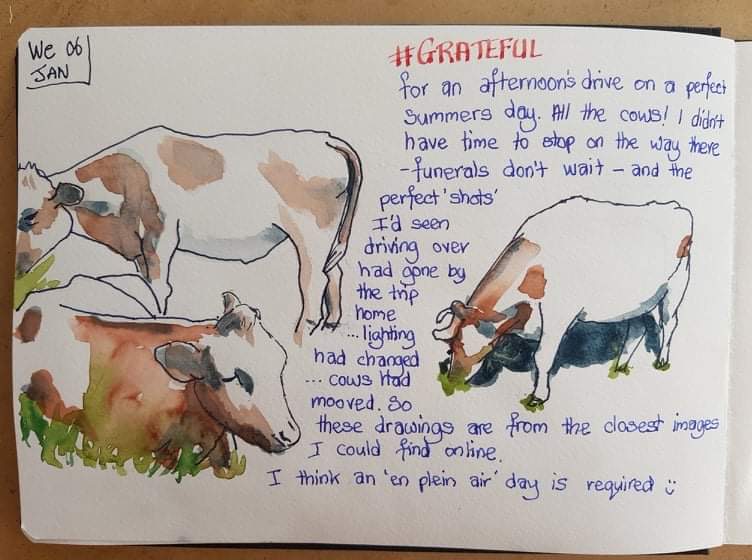 We 06
JAN
#GRATEFUL
for an afternoon's drive on a perfect
Summers day. All the cows! I didn't
have time to stop on the way there
- funerals don't wait - and the
perfect 'shots'
I'd seen
driving over
had gone by
the trip
home
... lighting
had changed
... cows had
mooved. So
these drawings are from the closest images
I could find online.
I think an 'en plein air' day is required :)